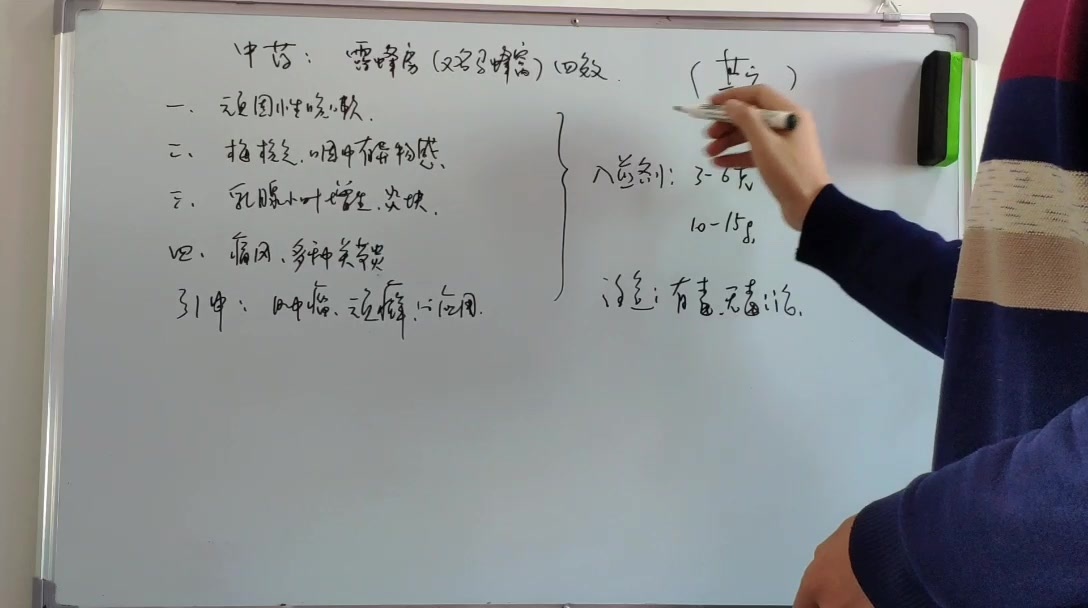 中药：露蜂房（又名马蜂窝）四效.
一、顽固性咳嗽.
二、梅核气.咽中有异物感.
三、乳腺小叶增生.炎块.
四、痛风、多种关节炎
引申：肿瘤、顽癣.应用.
入药剂：3-6g
10-15g.
注意：有毒.无毒